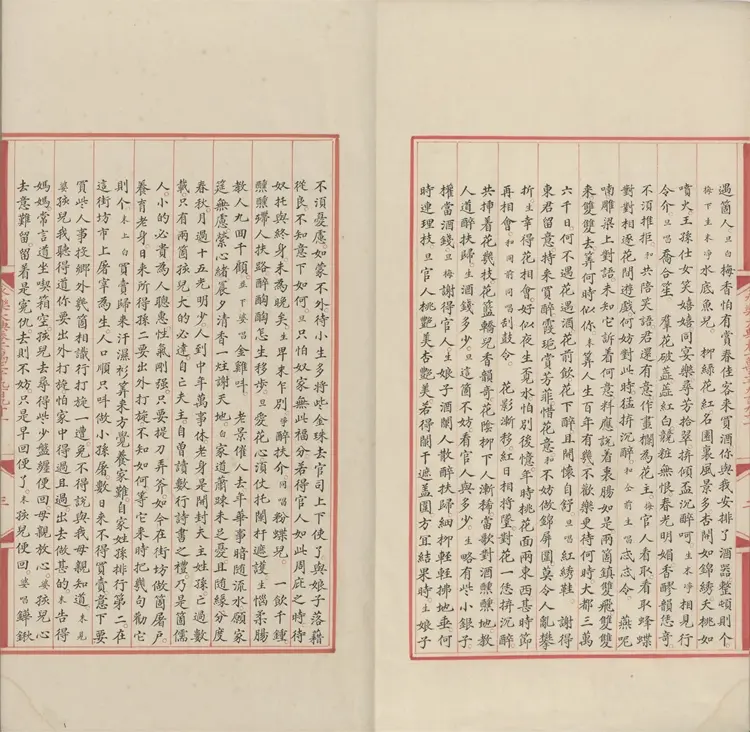 遇箇人旦白梅香怕有賞春佳客來買你與我安排了酒器整頓則个
梅下生末呼水底魚兒　柳綠花紅名園裏風景多杏開如錦綉夭桃如
噴火王孫仕女笑嬉嬉同宴樂尋芳拾翠拚傾盃沉醉呵生末呼相見行
令介旦唱喬合笙　羣花破蘂蘂紅白競粧無恨春光明媚香膠韻恁奇
不須推拒和共陪笑語君還有意作畫欄為花主梅官人看取看取蜂蝶
對對相逐花間遊戲何妨對此時猛拚沉醉和合前生唱忒忒令　燕呢
喃雕梁上對語未知它訴着何意料應說着衷腸如是兩箇鎮雙飛雙雙
來雙雙去筭何時似你末筭人生百年有幾不歡樂更待何時大都三萬
六千日何不遇花遇酒花前飲花下醉且開懷自舒旦唱紅綉鞋　謝得
東君留意持來買醉霞琬賞芳菲惜花意和不妨做錦屏圍莫令人亂攀
折生幸得花相會好似夜生覔水怕別後憶年時桃花面兩東西甚時節
再相會和同前同唱刮鼓令　花影漸移紅日相將墜對花一恁拚沉醉
共挿着花與枝花藍轎兒香韻奇花陰柳下人漸稀當歌對酒醺醺地教
人道醉扶歸生酒錢多少旦這箇不妨看官人與多少生略有些小銀子
權當酒錢旦梅謝得官人生末娘子酒闌人散醉扶歸細柳輕輕拂地垂何
時連理枝旦官人桃艷美杏艷美若得闌干遮蓋圍方宜結果時生娘子
不須憂慮如蒙不外待小生多將些金珠去官司上下使了與娘子落藉
從良不知意下如何旦只怕奴家無此福分若得官人如此周庇之時待
奴托與終身未為晚矣生早來乍別呼醉扶介同唱粉蝶兒　一飲千鍾
醺醺㱕人扶路醉酶酶怎生移步旦愛花心須仗托闌扞遮護生惱柔腸
教人九回千顧並下婆唱金雞呌　老景催人去年華事暗隨流水願家
筵無慮縈心緒晨夕清香一炷謝天地白家道蕭疎未足憂且隨緣分度
春秋月過十五光明少人到中年萬事休老身是開封夫主姓孫亡過數
載只有兩箇孩兒大的必達自亡夫主自曾讀數行詩書之禮乃是箇儒
人小的必貴為人聰惠性氣剛强只要提刀弄斧如今在街坊做箇屠戶
養育老身日來所得孫二要出外打旋不知如何等它來時把幾句勸它
則个末上白買賣歸來汗濕衫筭來方覺養家難自家姓孫排行第二在
這街坊市上屠宰為生人口順只呌做小孫屠數日來不得買賣意下要
買些人事投鄉外幾箇相識行打旋一遭免不得說與我母親知道末見
婆孩兒我聽得道你要出外打旋怕家中得過且過出去做甚的末告得
媽媽常言道坐喫箱空孩兒去尋得些少盤纏便回母親放心婆孩兒心
去意難留留着是寃仇去則不妨只是早回便了末孩兒便回婆唱鏵鍬